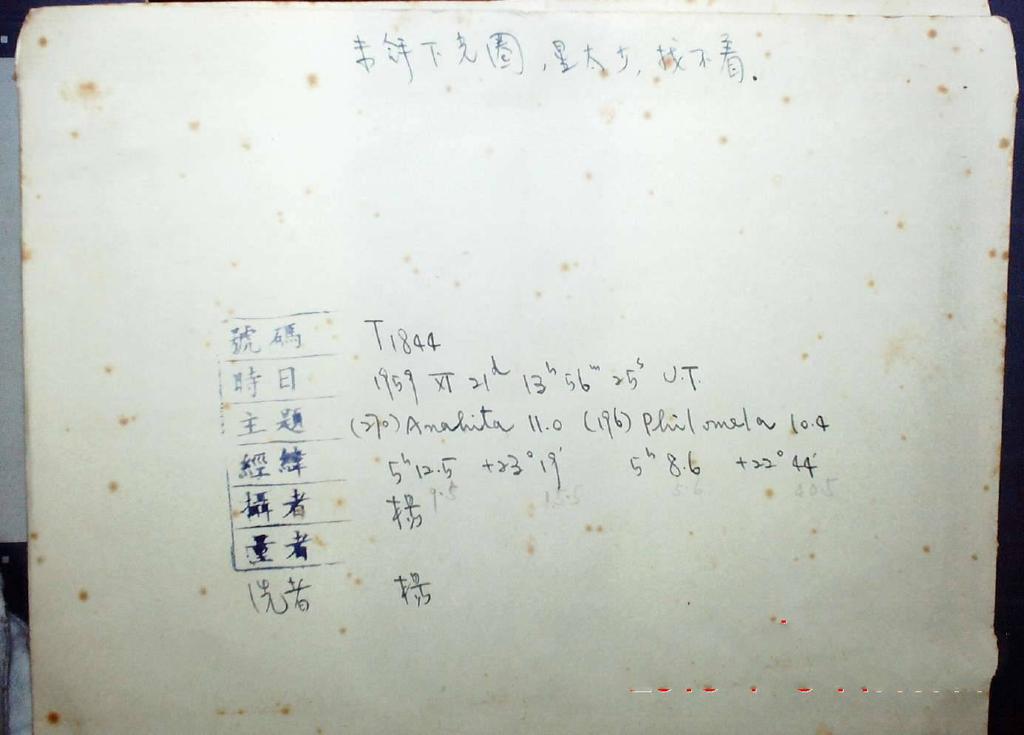 下 圈,星太少,找不着.
號碼 T1844
時日 1959 XI 21ᵈ 13ʰ 56ᵐ 25ˢ U.T.
主題 (270) Anahita 11.0 (196) Philomela 10.4
經緯 5ʰ 12.5 +23° 19′ 5ʰ 8.6 +22° 44′
9.5 5.6 40.5
攝者 楊
量者
洗者 楊